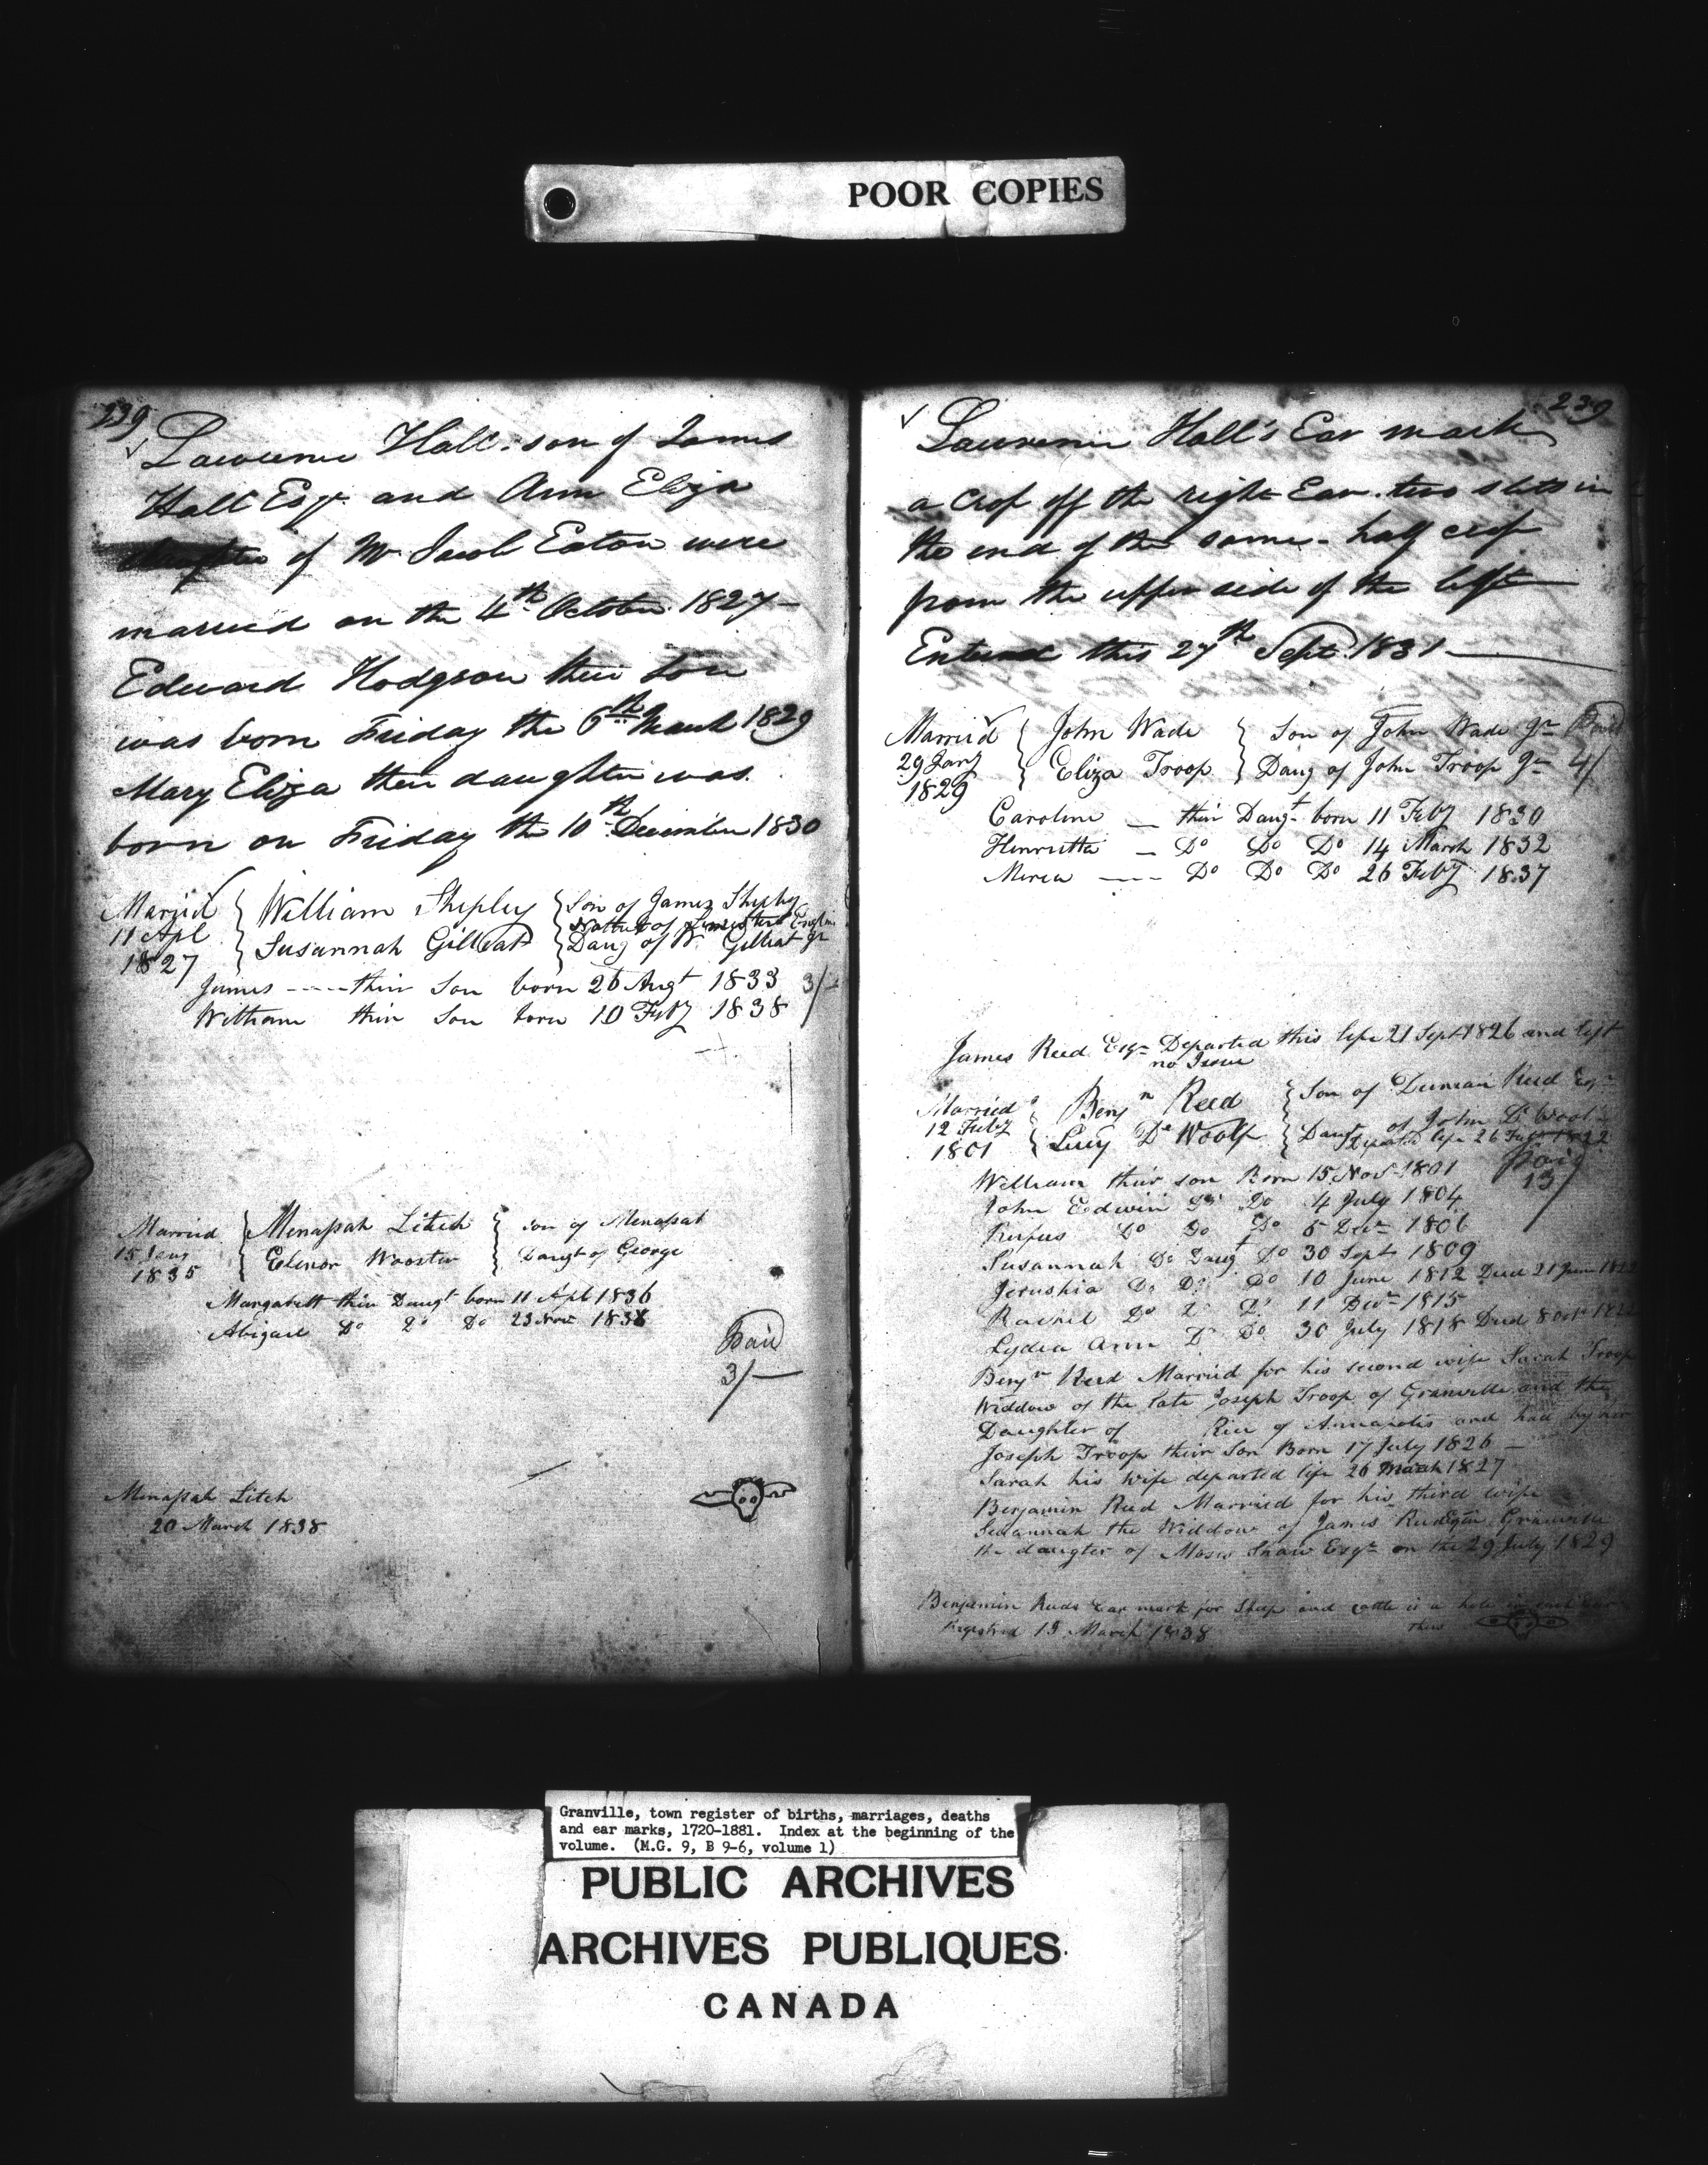 POOR COPIES
239
Lawrence Hall son of James
Hall Esqr. and Ann Eliza
of Mr Jacob Eaton were
married on the 4th October 1827 —
Edward Hodgson their son
was born Friday the 6th March 1829
Mary Eliza their daughter was
born on Friday the 10th December 1830
Married William Shipley Son of James Shiply
Native of England
11 Apl Susannah Gilleat Daug of W. Gilleat Jr
1827
James ---- their Son born 26 Augt 1833 3/-
William their Son born 10 Feby 1838
Married Menassah Litch son of Menassah
15 Jany Elenor Wooster Daugt of George
1835
Margarett their Daugt born 11 Apl 1836
Abigail Do Do Do 23 Nov 1838
Paid
3/—
Menassah Litch
20 March 1838
239
Lawrence Hall's Ear mark
a Crop off the right Ear. two slits in
the end of the same - half crop
from the upper side of the left
Entered this 27th Sept. 1831 —
Married John Wade Son of John Wade Jr Paid
29 Jany Eliza Troop Daug of John Troop Jr 4/
1829
Caroline — their Daugt born 11 Feby 1830
Henrietta — Do Do Do 14 March 1832
---- Do Do Do 26 Feby 1837
James Reed Esqr Departed this life 21 Sept 1826 and left
no Issue
Married Benjn Reed Son of Duncan Reed Esqr
12 Feby Lucy De Woolf Daugt of John De Woolf
1801 Departed life 26 1822
William their son Born 15 Nov 1801 Paid
13/
John Edwin Do Do 4 July 1804
Rufus Do Do Do 5 Decr 1806
Susannah Do Daugt Do 30 Sept 1809
Jerushia Do Do Do 10 June 1812 Died 21 June
Rachel Do Do Do 11 Decr 1815
Lydia Ann Do Do 30 July 1818 Died 8 Oct
Benjn Reed Married for his second wife Sarah Troop
Widdow of the late Joseph Troop of Granville and the
Daughter of Rice of Annapolis and had by her
Joseph Troop their Son Born 17 July 1826 —
Sarah his wife departed life 26 March 1827
Benjamin Reed Married for his third wife
Susannah the Widdow of James Reed Granville
the daugter of Moses Shaw Esqr on the 29 July 1829
Benjamin Reeds Ear mark for Sheep and cattle is a hole in each Ear
Registred 13 March 1838 thus
Granville, town register of births, marriages, deaths
and ear marks, 1720-1881. Index at the beginning of the
volume. (M.G. 9, B 9-6, volume 1)
PUBLIC ARCHIVES
ARCHIVES PUBLIQUES
CANADA